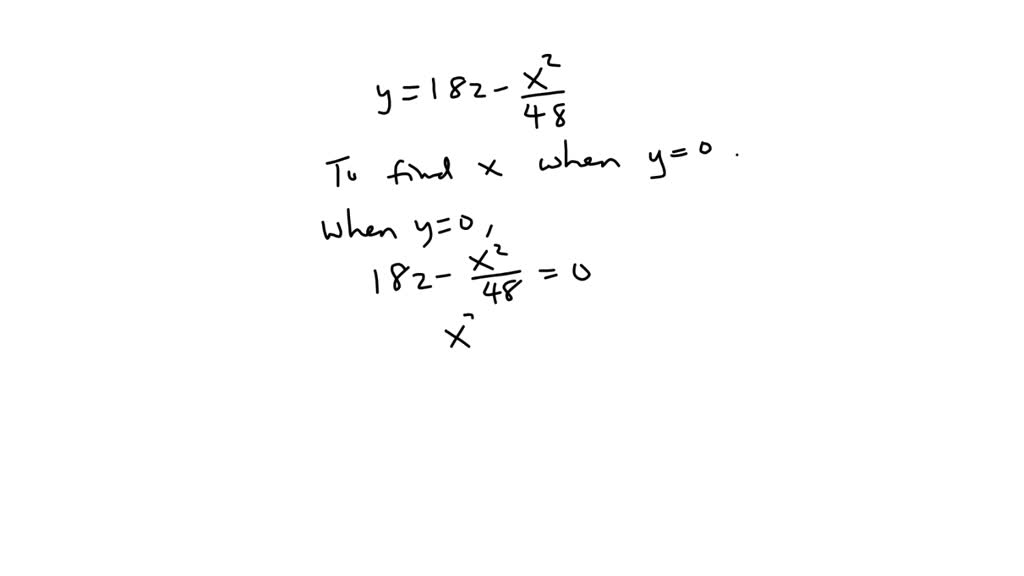 y = 182 - x²/48
To find x when y = 0.
when y = 0,
182 - x²/48 = 0
x²